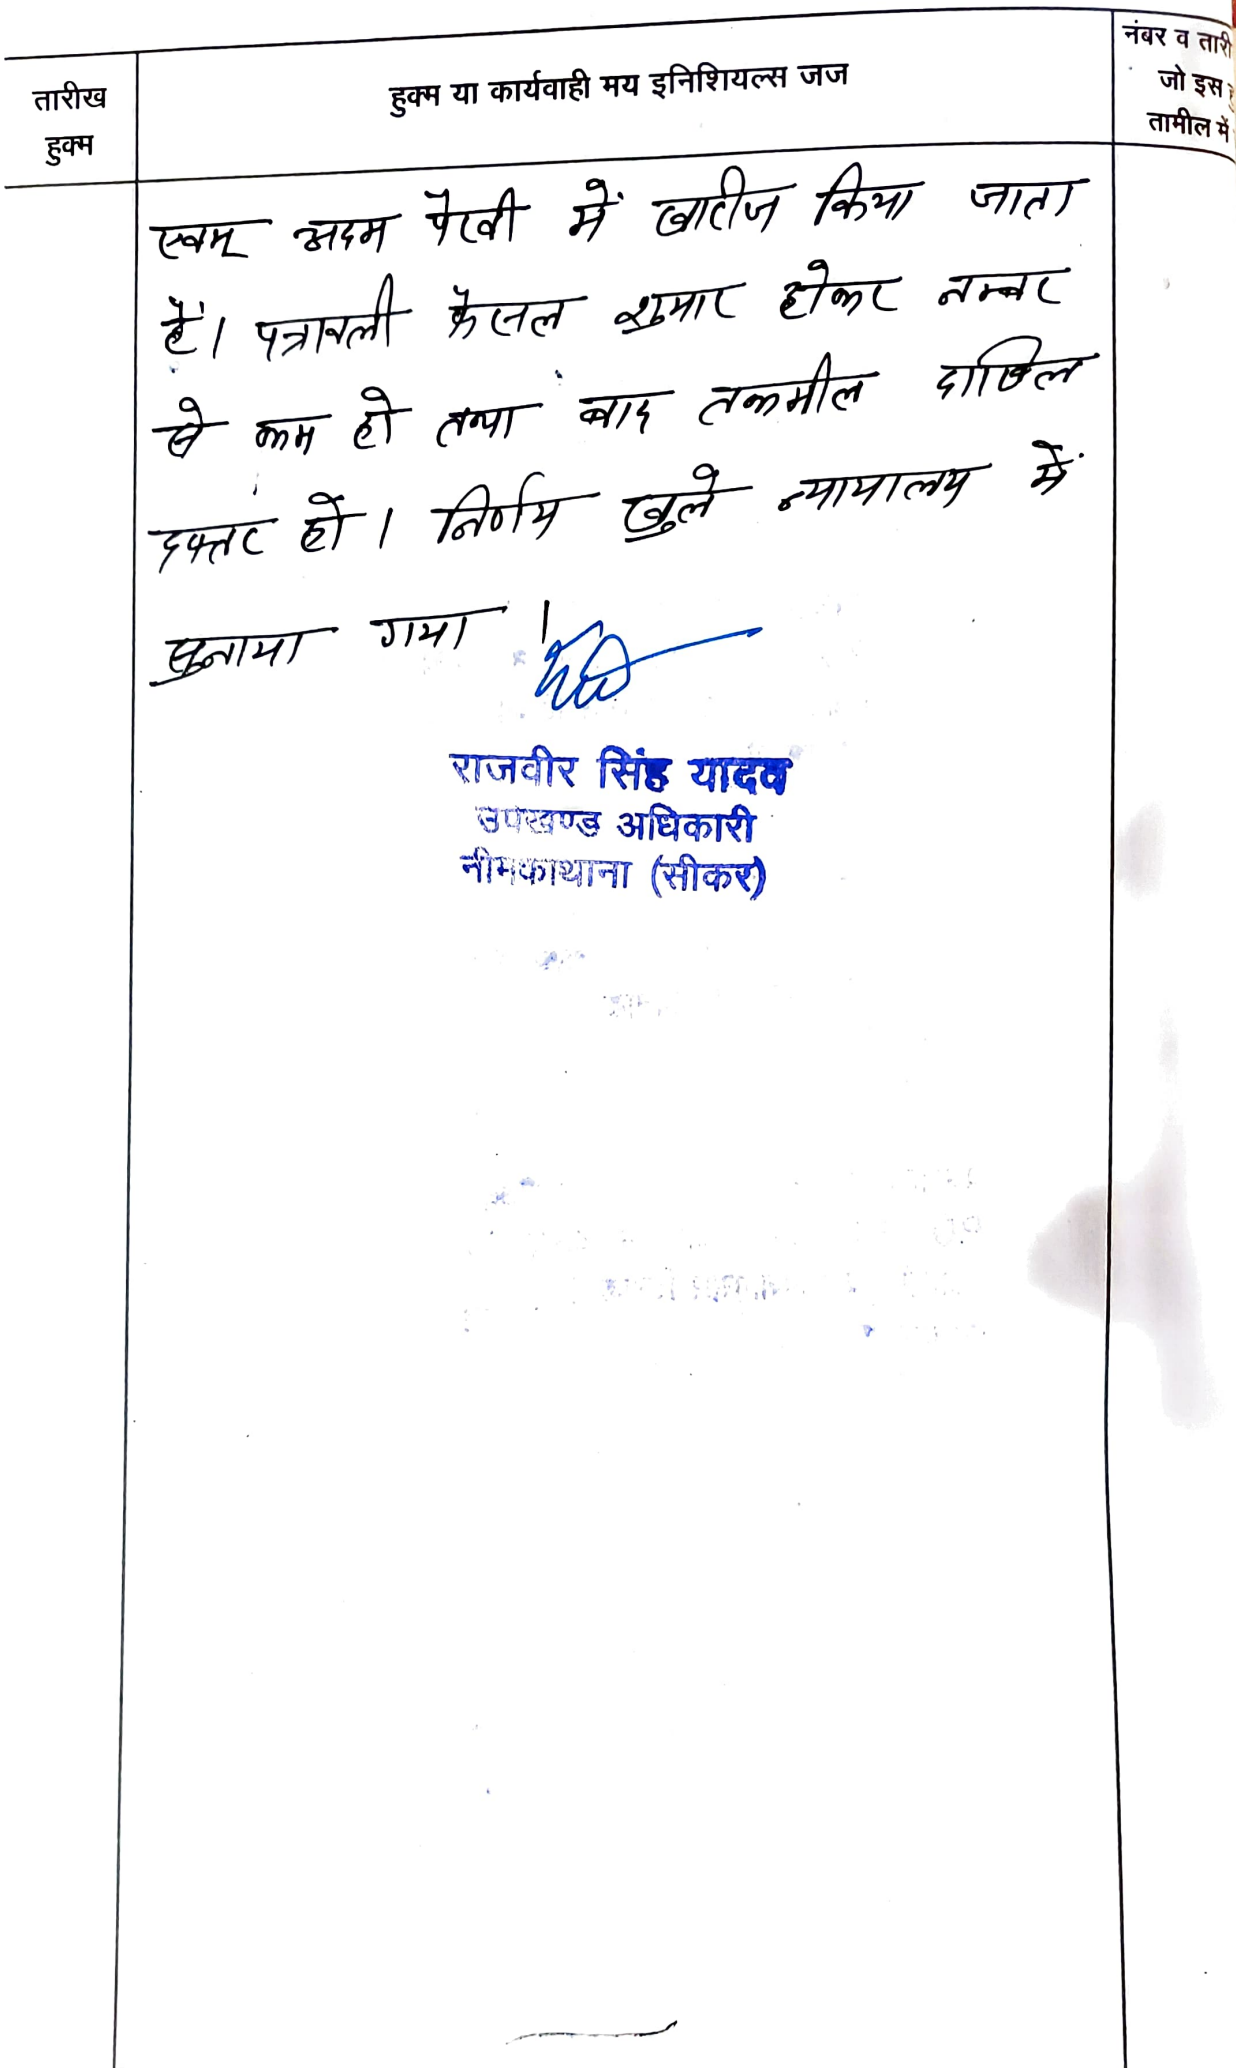 तारीख
हुक्म
हुक्म या कार्यवाही मय इनिशियल्स जज
नंबर व तारी
जो इस
तामील में
एवम् अदम पैरवी में खारीज किया जाता
है। पत्रावली फैसल शुमार होकर नम्बर
से कम हो तथा बाद तकमील दाखिल
दफ्तर हो। निर्णय खुले न्यायालय में
सुनाया गया।
राजवीर सिंह यादव
उपखण्ड अधिकारी
नीमकाथाना (सीकर)